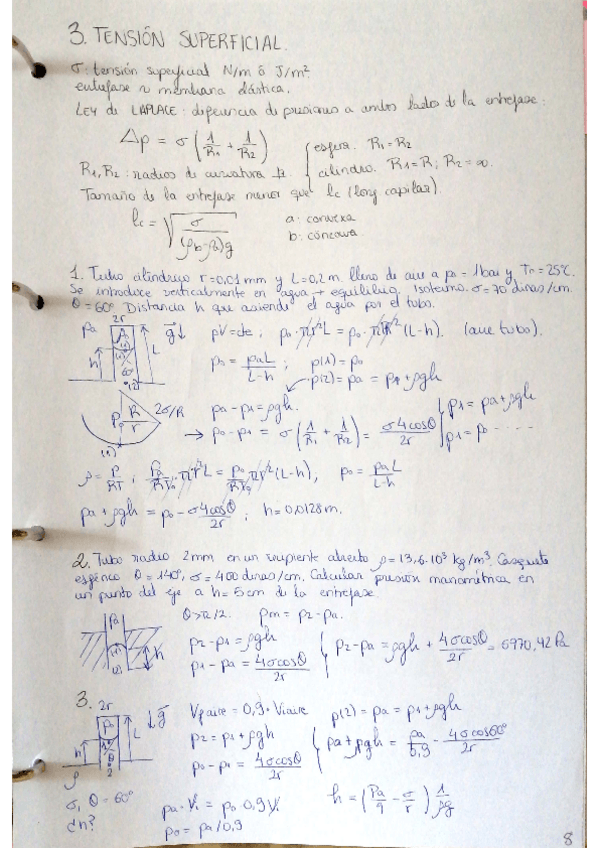 3. TENSIÓN SUPERFICIAL.
σ: tensión superficial N/m ó J/m².
entrefase ≈ membrana elástica.
LEY de LAPLACE: diferencia de presiones a ambos lados de la entrefase:
Δp = σ (1/R1 + 1/R2) { esfera. R1 = R2
R1, R2: radios de curvatura { cilindro. R1 = R; R2 = ∞.
Tamaño de la entrefase menor que lc (long capilar).
lc = √(σ / (ρb - ρa)g) a: convexa
b: cóncava.
1. Tubo cilíndrico r=0,01 mm y L=0,2 m. lleno de aire a pa = 1bar y Tn = 25°C.
Se introduce verticalmente en agua → equilibrio. Isotermo. σ = 70 dinas/cm.
θ = 60° Distancia h que asciende el agua por el tubo.
pa 2r g L h 60° (1) (2)
pV = cte; p0 · πr²L = p0 · πr²(L-h). (aire tubo).
p0 = paL / L-h ; p(1) = p0
p(2) = pa = p1 + ρgh
P0 R r 2σ/R (1)
pa - p1 = ρgh.
→ p0 - p1 = σ (1/R1 + 1/R2) = σ4cosθ / 2r { p1 = pa + ρgh
p1 = p0 - ....
ρ = P/RT ; Pa/RT0 · πr²L = P0/RT0 πr²(L-h), p0 = paL / L-h
pa + ρgh = p0 - σ4cosθ / 2r ; h = 0,0128 m.
2. Tubo radio 2mm en un recipiente abierto ρ = 13,6·10³ kg/m³. Casquete
esférico θ = 140°, σ = 400 dinas/cm. Calcular presión manométrica en
un punto del eje a h = 5 cm de la entrefase.
pa h
θ > π/2. pm = p2 - pa.
p2 - p1 = ρgh
p1 - pa = 4σcosθ / 2r { p2 - pa = ρgh + 4σcosθ / 2r = 6970,42 Pa
3. 2r p0 g L h θ 2 ρ
σ, θ = 60°
¿h?
Vfaire = 0,9 · Viaire
p2 = p1 + ρgh
p0 - p1 = 4σcosθ / 2r
p(2) = pa = p1 + ρgh
pa + ρgh = pa / 0,9 - 4σcos60° / 2r
pa · Vi = p0 · 0,9 Vi
p0 = pa/0,9
h = (Pa/9 - σ/r) 1/ρg
8